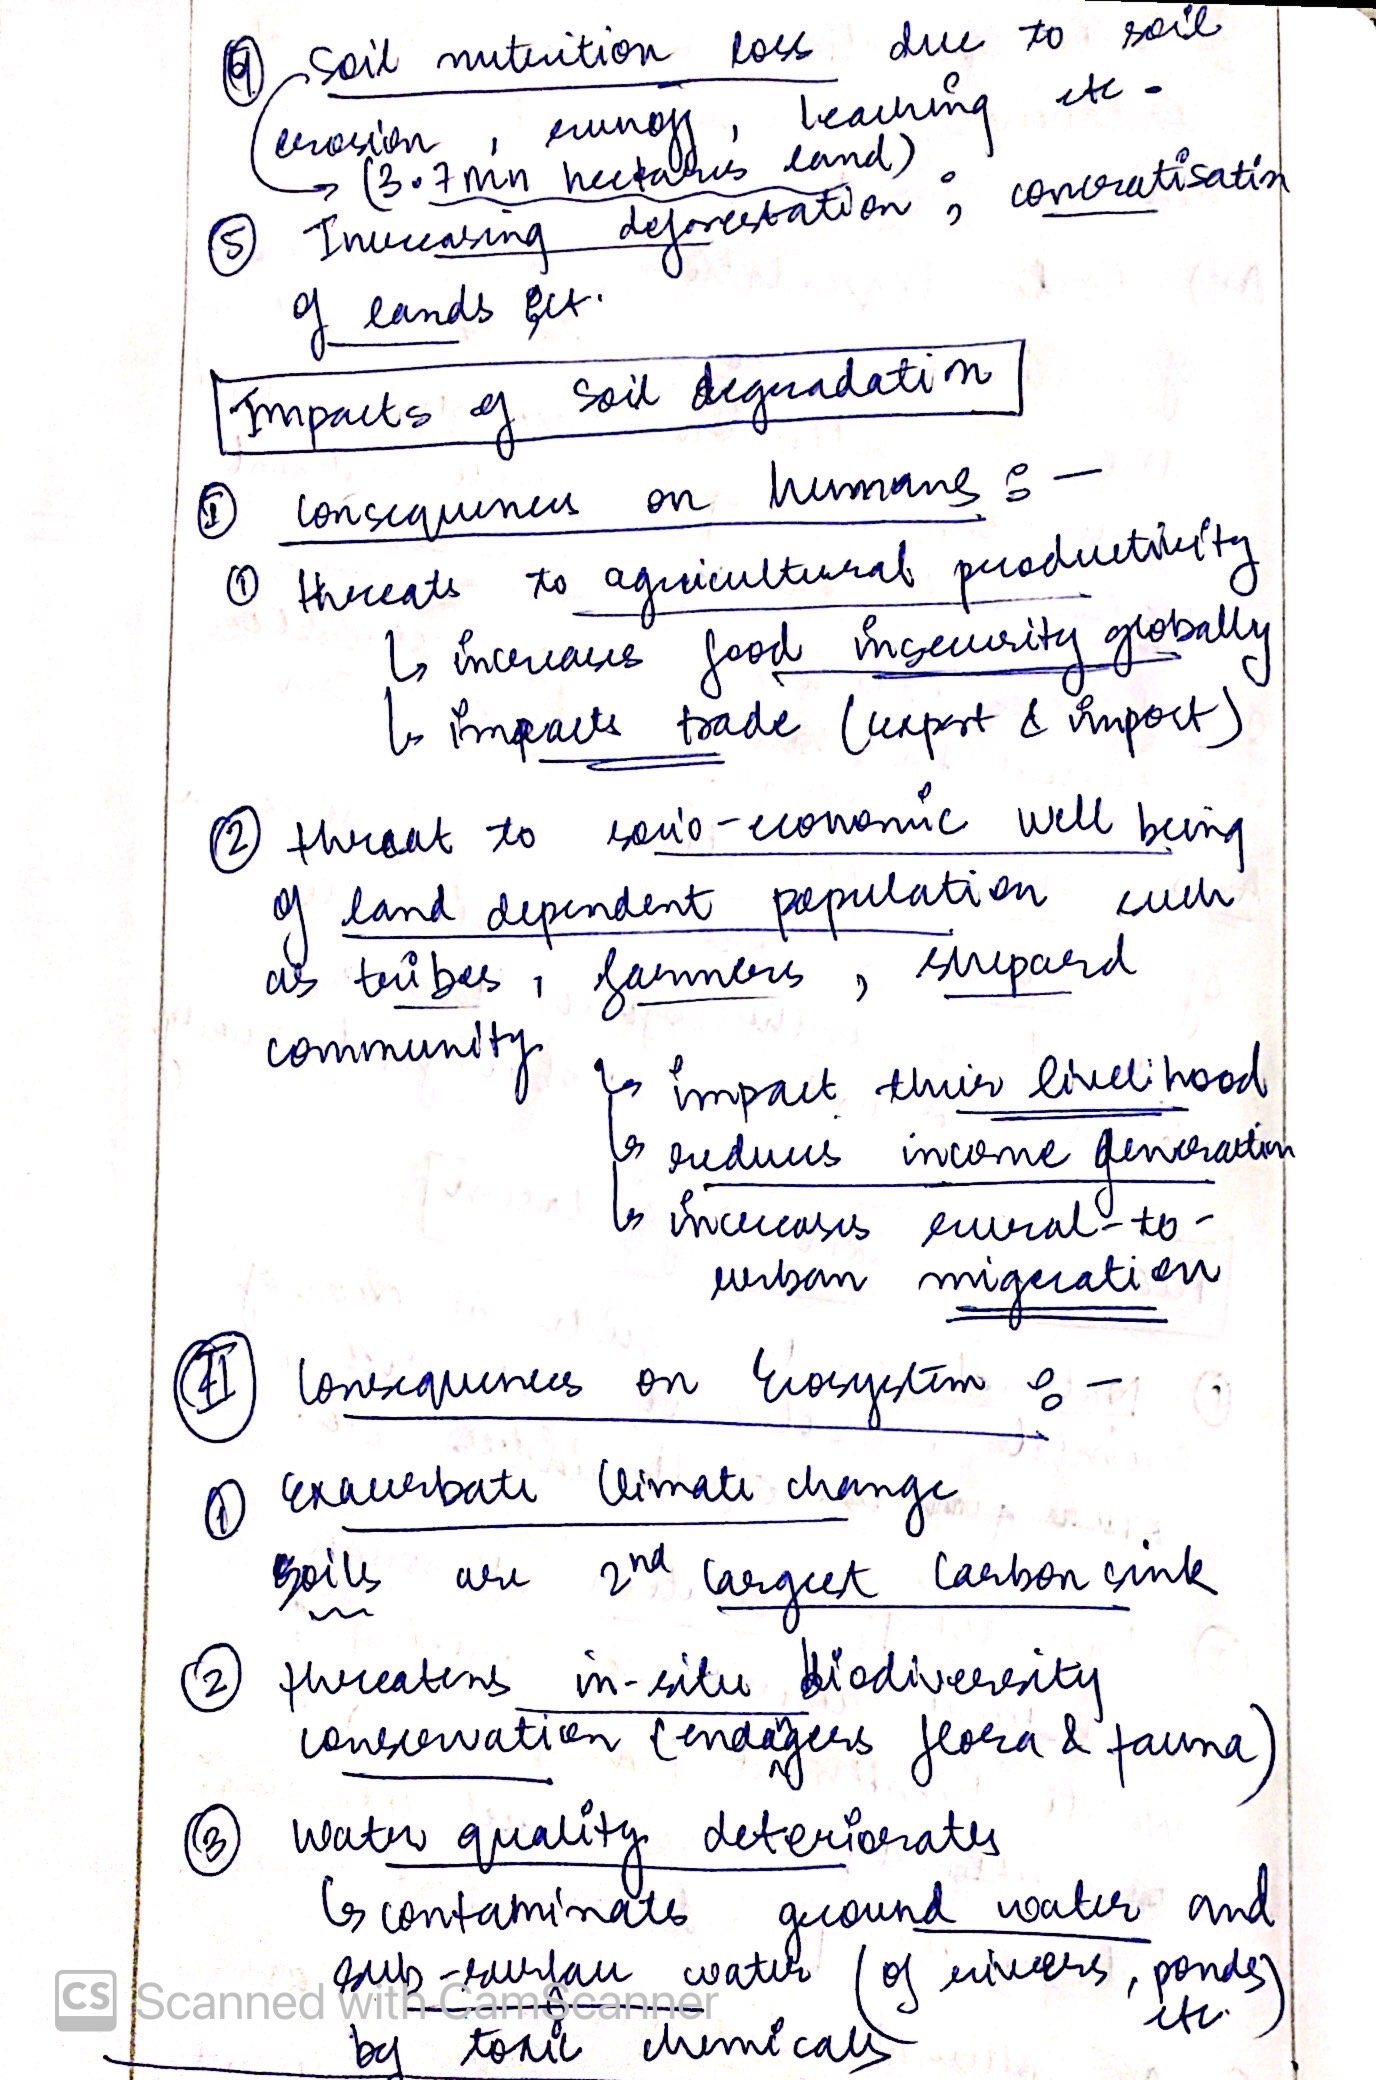 ④ Soil nutrition loss due to soil
erosion, runoff, leaching etc.
→ (3.7 mn hectares land)
⑤ Increasing deforestation, concratisation
of lands etc.
Impacts of Soil degradation
Ⓘ Consequences on humans :-
① threats to agricultural productivity
↳ increases food insecurity globally
↳ impacts trade (export & import)
② threat to socio-economic well being
of land dependent population such
as tribes, farmers, shepard
community
↳ impact their livelihood
↳ reduces income generation
↳ increases rural-to-
urban migration
Ⓘ Ⓘ Consequences on Ecosystem :-
① Exacerbate Climate change
soils are 2nd largest Carbon sink
② threatens in-situ biodiversity
conservation (endangers flora & fauna)
③ Water quality deteriorates
↳ contaminates ground water and
sub-surface water (of rivers, ponds,
etc.)
by toxic chemicals
CS Scanned with CamScanner